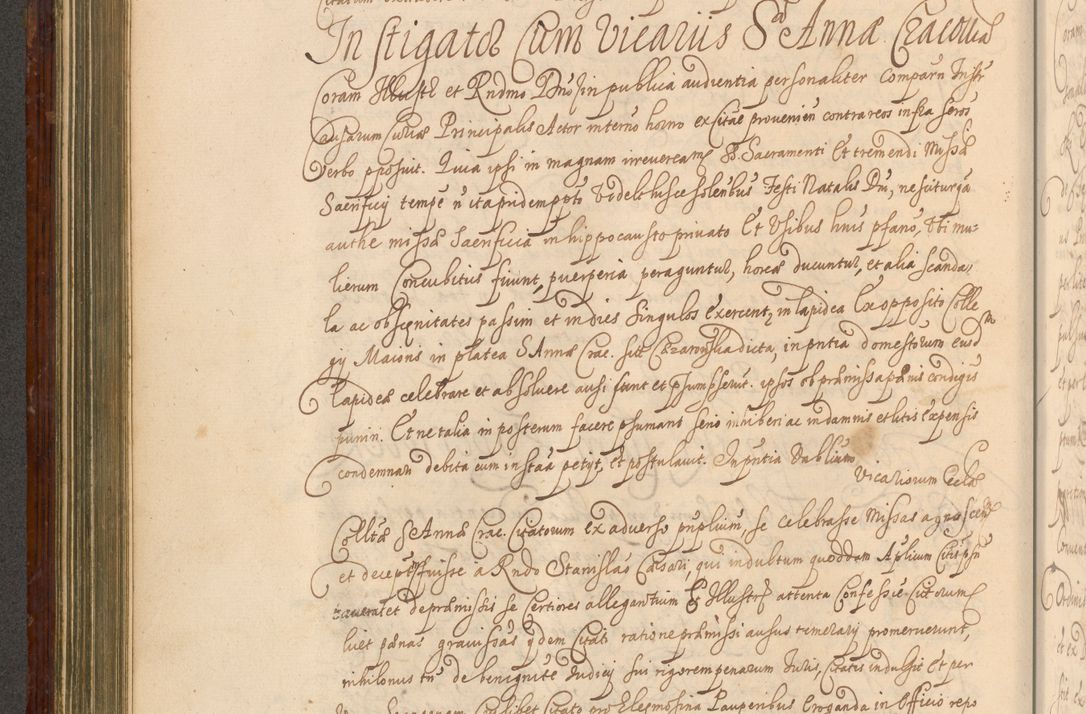 Instigator Cum Vicariis S. Annæ Cracoviæ
Coram Illustri et Rndmo Dno in publica audientia personaliter Comparn Instr
Causarum Curiæ Principalis Actor interno horno ex Citãe provenien contra reos infra seros
Verbo pposuit. Quia ipsi in magnam irreverentiam SS. Sacramenti Et tremendi Missæ
Sacrificij tempe n ita pridem ppto Videlt huiusce solenbus Festi Natalis Dni, nefciturqã
authe missæ Sacrificia in hippocausto privato Et Usibus huius pfano, Vti mu-
lierum Concubitus fiunt, puerperia peraguntur, horeæ ducuntur, et alia scanda-
la ac obscænitates passim et in dies singulos exercentr, in lapidea Ex opposito Colle
gij Maioris in platea S Annæ Crac. sit dicta, in pntia domesticorum eiusdm
Lapideæ celebrare et absolvere ausi sunt et psumpserūt. ipsos ob præmissa pænis condignis
puniri. Et ne talia in posterum facere psumant serio inhiberi ac in damnis et litis Expensis
condemnari debita cum instãa petyt, et postulavit. In pntia Dnblium
Vicariorum Ecclæ
Colltæ S Annæ Crac. Citatorum ex adverso pnpluium, se celebrasse Missas agnoscen
et deceptos fuisse a Rndo Stanislao Cæsari, qui indultum quoddam Aplicum
et de præmissis se Certiores allegantium Illustr attenta Confessie Citorum
luet pænas gravissas qdem Citati ratione præmissi ausus temerarij promeruerunt,
nihilonus tn de benignite Iudicij sui rigorem penarum Iuris, Citatis indulsit Et per
quemlibet Citato pro Elemosina Pauperibus Eroganda in Officio repo